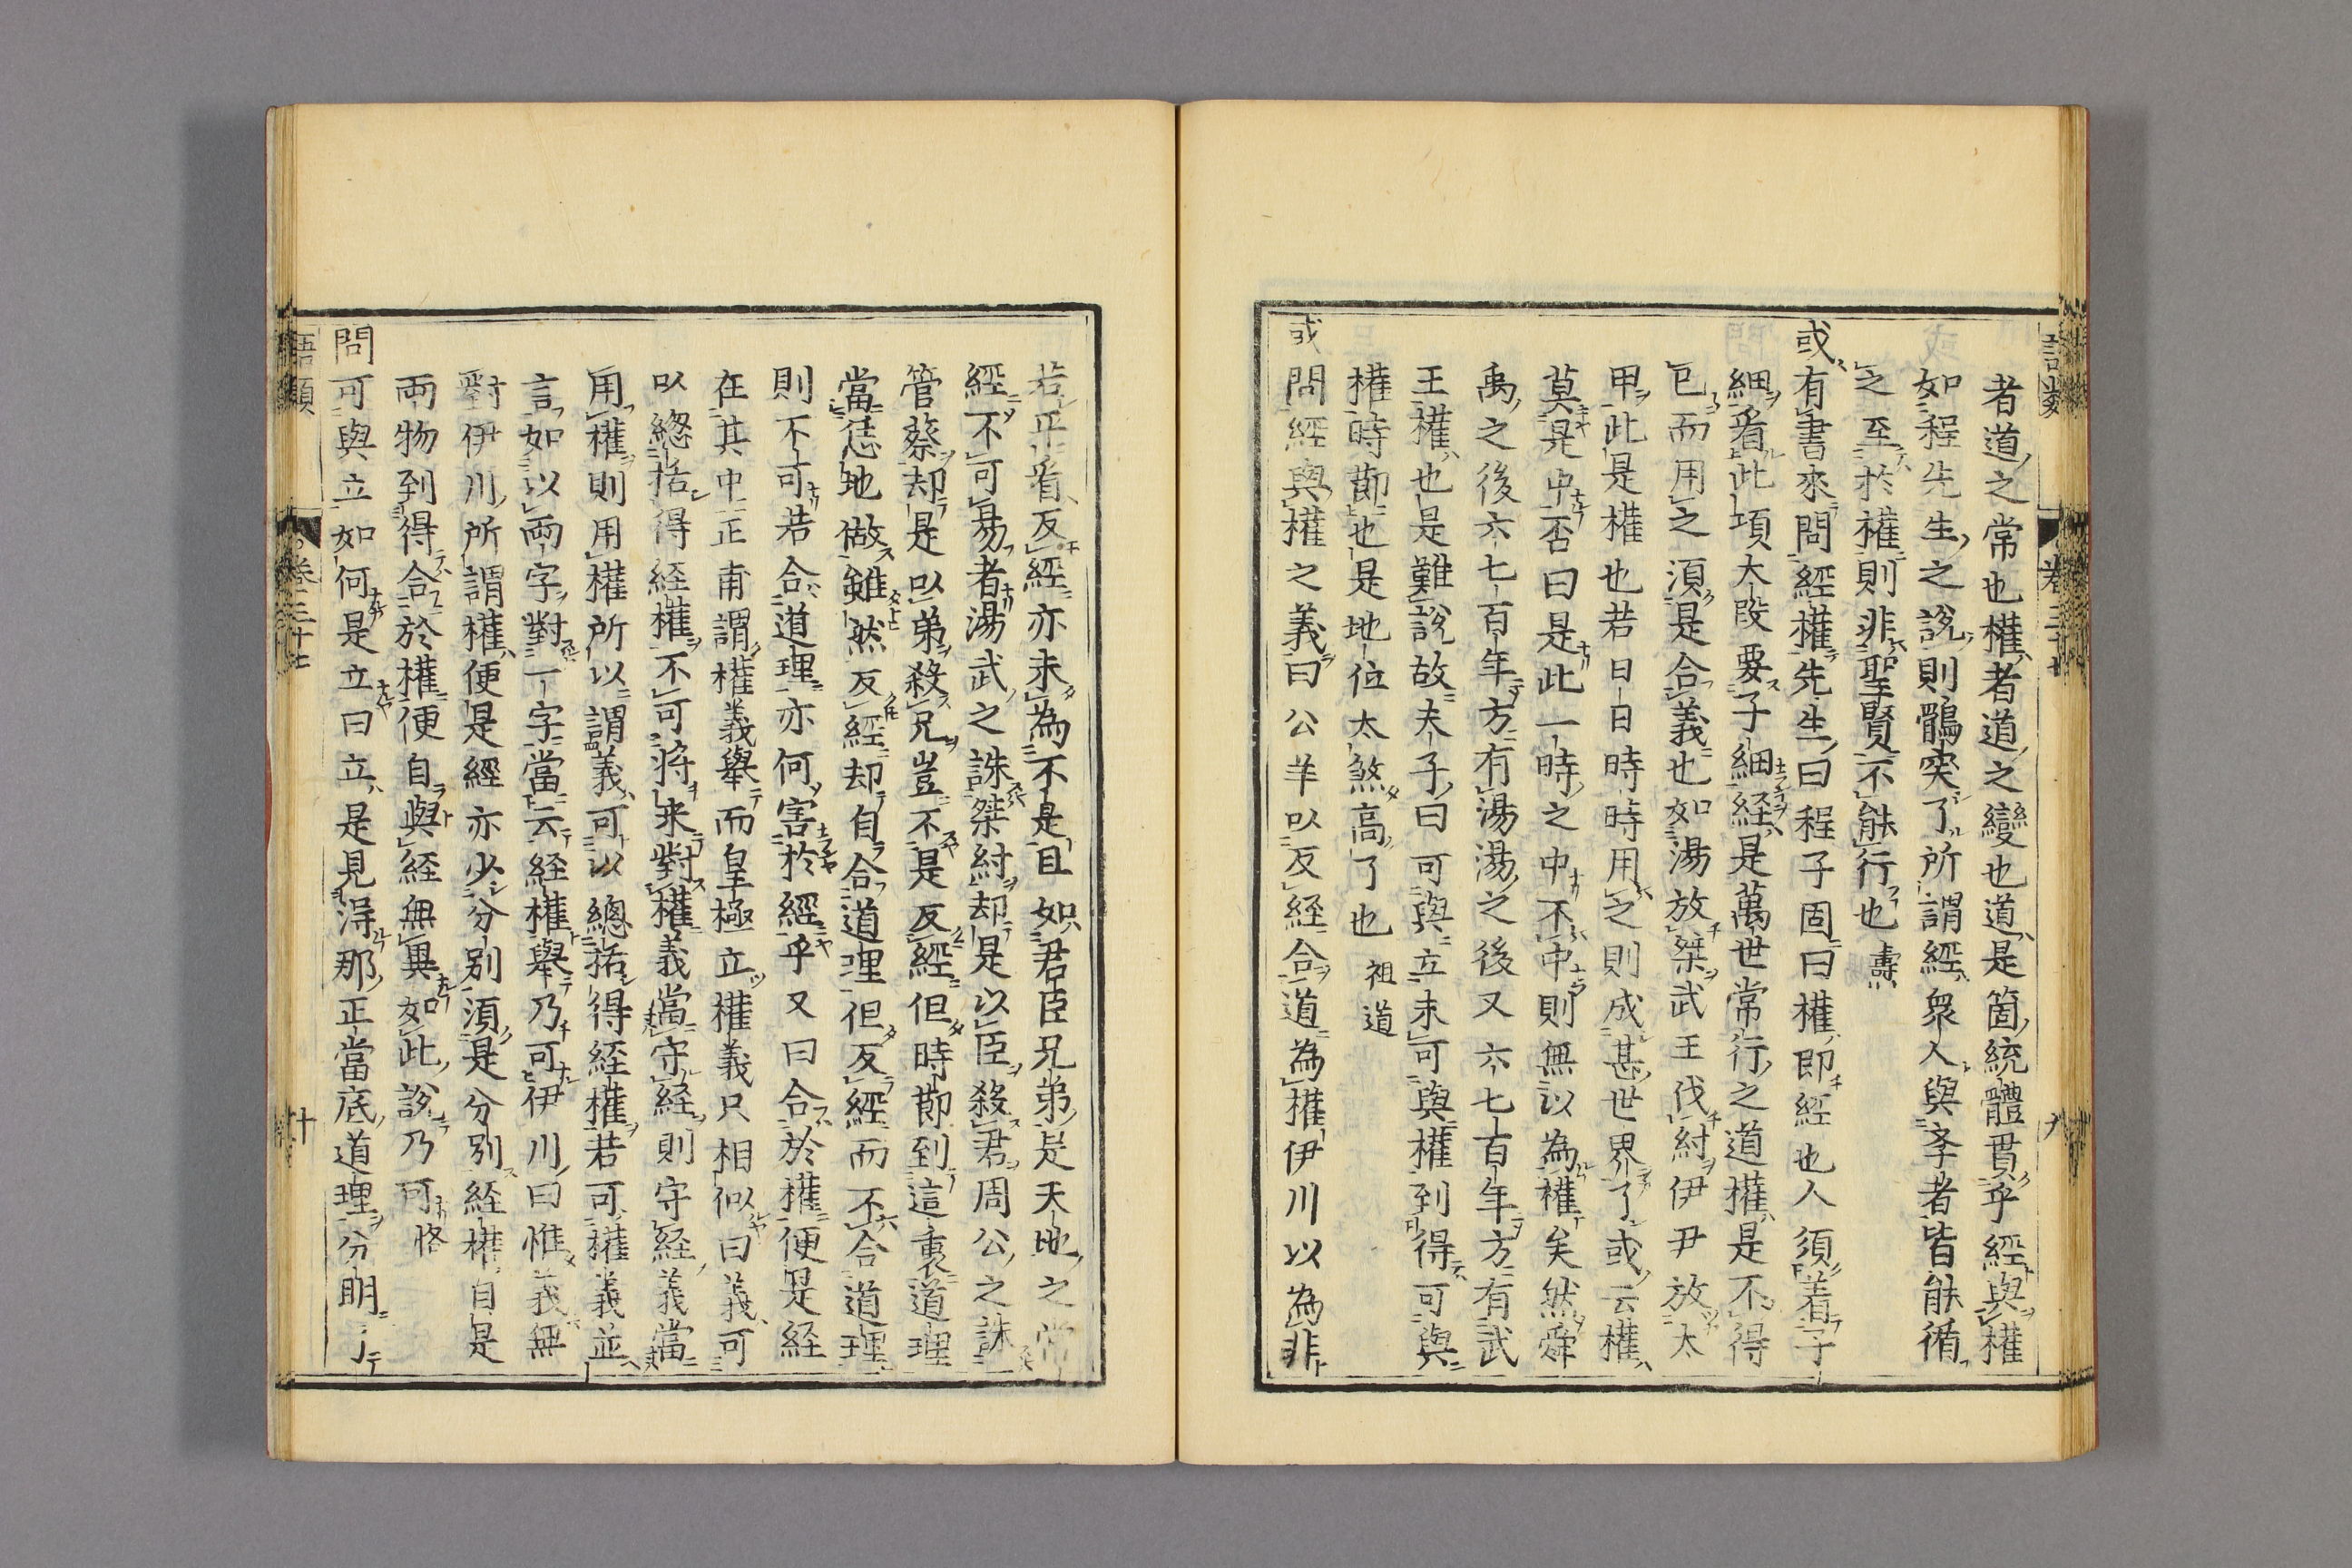 語類
卷三十七
九
者道之常也權者道之變也道是箇統體貫乎經與權
如程先生之說則鶻突了所謂經衆人與斈者皆能循
之至於權則非聖賢不能行也 燾
或有書來問經權先生曰程子固曰權即経也人須着子
細看此項大段要子細経是萬世常行之道權是不得
已而用之須是合義也如湯放桀武王伐紂伊尹放太
甲此是權也若日日時時用之則成甚世界了或云權
莫是中否曰是此一時之中不中則無以為權矣然舜
禹之後六七百年方有湯湯之後又六七百年方有武
王權也是難說故夫子曰可與立未可與權到得可與
權時節也是地位太煞高了也 祖道
或問經與權之義曰公羊以反經合道為權伊川以為非
若平看反經亦未為不是且如君臣兄弟是天地之常
經不可易者湯武之誅桀紂却是以臣殺君周公之誅
管蔡却是以弟殺兄豈不是反經但時節到這裏道理
當恁地做雖然反經却自合道理但反經而不合道理
則不可若合道理亦何害於經乎又曰合於權便是経
在其中正甫謂權義舉而皇極立權義只相似曰義可
以緫括得経權不可将来對權義當守経則守経義當
用權則用權所以謂義可以總括得経權若可權義並
言如以両字對一字當云経權舉乃可伊川曰惟義無
對伊川所謂權便是經亦少分別須是分別経權自是
両物到得合於權便自與経無異如此說乃可 恪
問可與立如何是立曰立是見得那正當底道理分明了
語類
卷三十七
十